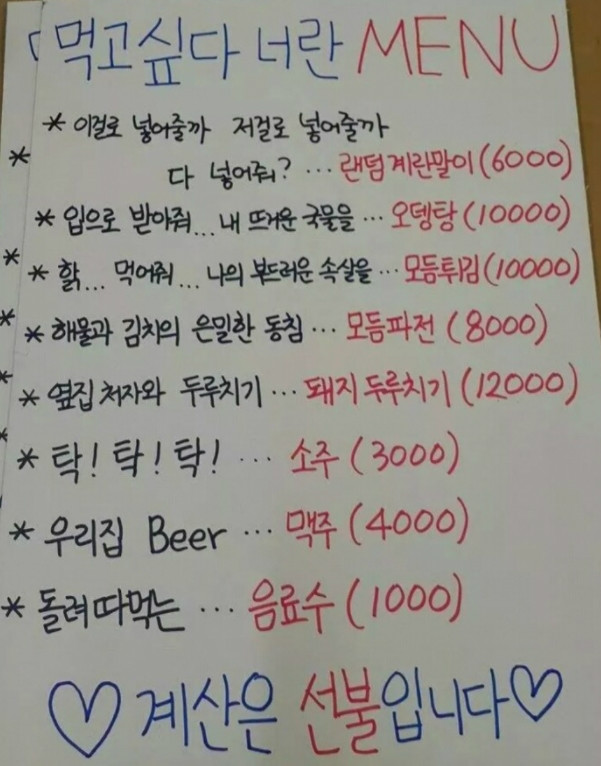 먹고싶다 너란 MENU
* 이걸로 넣어줄까 저걸로 넣어줄까
다 넣어줘? ... 랜덤계란말이(6000)
* 입으로 받아줘... 내 뜨거운 국물을 ... 오뎅탕(10000)
* 핡... 먹어줘... 나의 부드러운 속살을 ... 모듬튀김(10000)
* 해물과 김치의 은밀한 동침 ... 모듬파전(8000)
* 옆집 처자와 두루치기 ... 돼지 두루치기(12000)
* 탁! 탁! 탁! ... 소주(3000)
* 우리집 Beer ... 맥주(4000)
* 돌려따먹는 ... 음료수(1000)
♡ 계산은 선불입니다♡